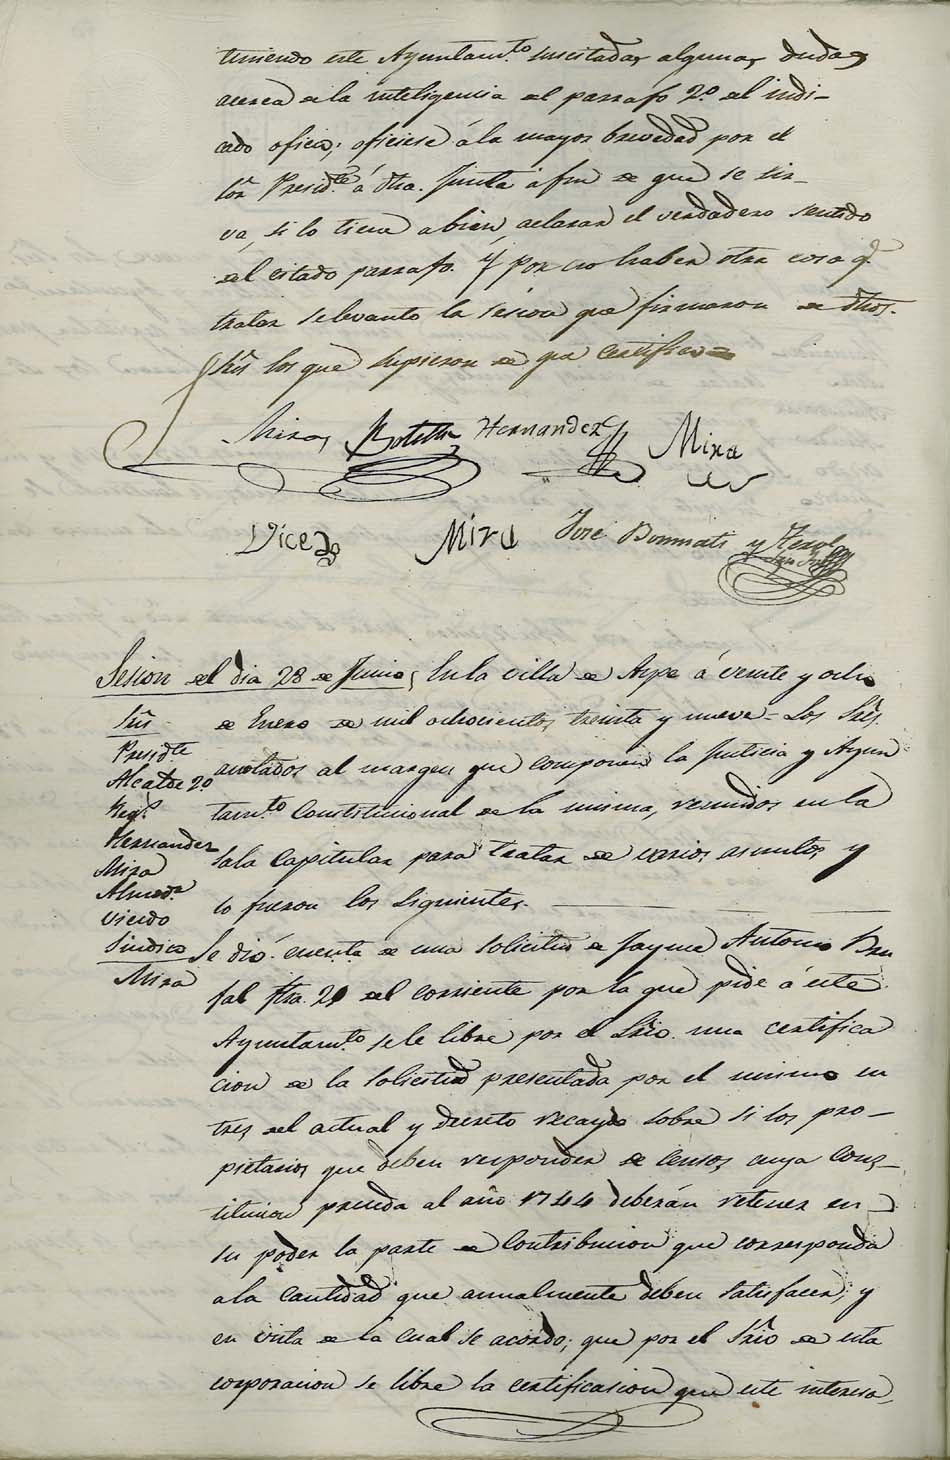 teniendo este Ayuntam.to suscitadas algunas dudas
acerca de la inteligencia del parrafo 2.o del indi-
cado oficio; oficiese á la mayor brevedad por el
Sõr Presid.te á dha. Junta á fin de que se sir-
va, si lo tiene a bien, aclarar el verdadero sentido
del citado parrafo. Y por no haber otra cosa q.e
tratar se levantó la sesion que firmaron de dhos.
Sres los que supieron de que certifico =
Mira Botella Hernandez Mira
Vicedo Mira José Bonmati y
Sesion del dia 28 de Junio; En la villa de Aspe á veinte y ocho
Sres de Enero de mil ochocientos treinta y nueve = Los Sres.
Presid.te
anotados al margen que componen la Justicia y Ayun
Alcalde 2o
Reg.s
tam.to Constitucional de la misma, reunidos en la
Hernandez
Sala Capitular para tratar de varios asuntos y
Mira
Almod.r
lo fueron los siguientes.
Vicedo
Sindico
Se dió cuenta de una solicitud de Jayme Antonio
Mira
fha. 21 del corriente por la que pide á este
Ayuntam.to se le libre por el Srio. una certifica
cion de la solicitud presentada por el mismo en
tres del actual y decreto recaydo sobre si los pro-
pietarios que deben responder de censos cuya cons-
titucion preceda al año 1744 deberán retener en
su poder la parte de contribucion que corresponda
a la cantidad que anualmente deben satisfacer; y
en vista de la cual se acordó; que por el Srio de esta
corporacion se libre la certificacion que este interesa,